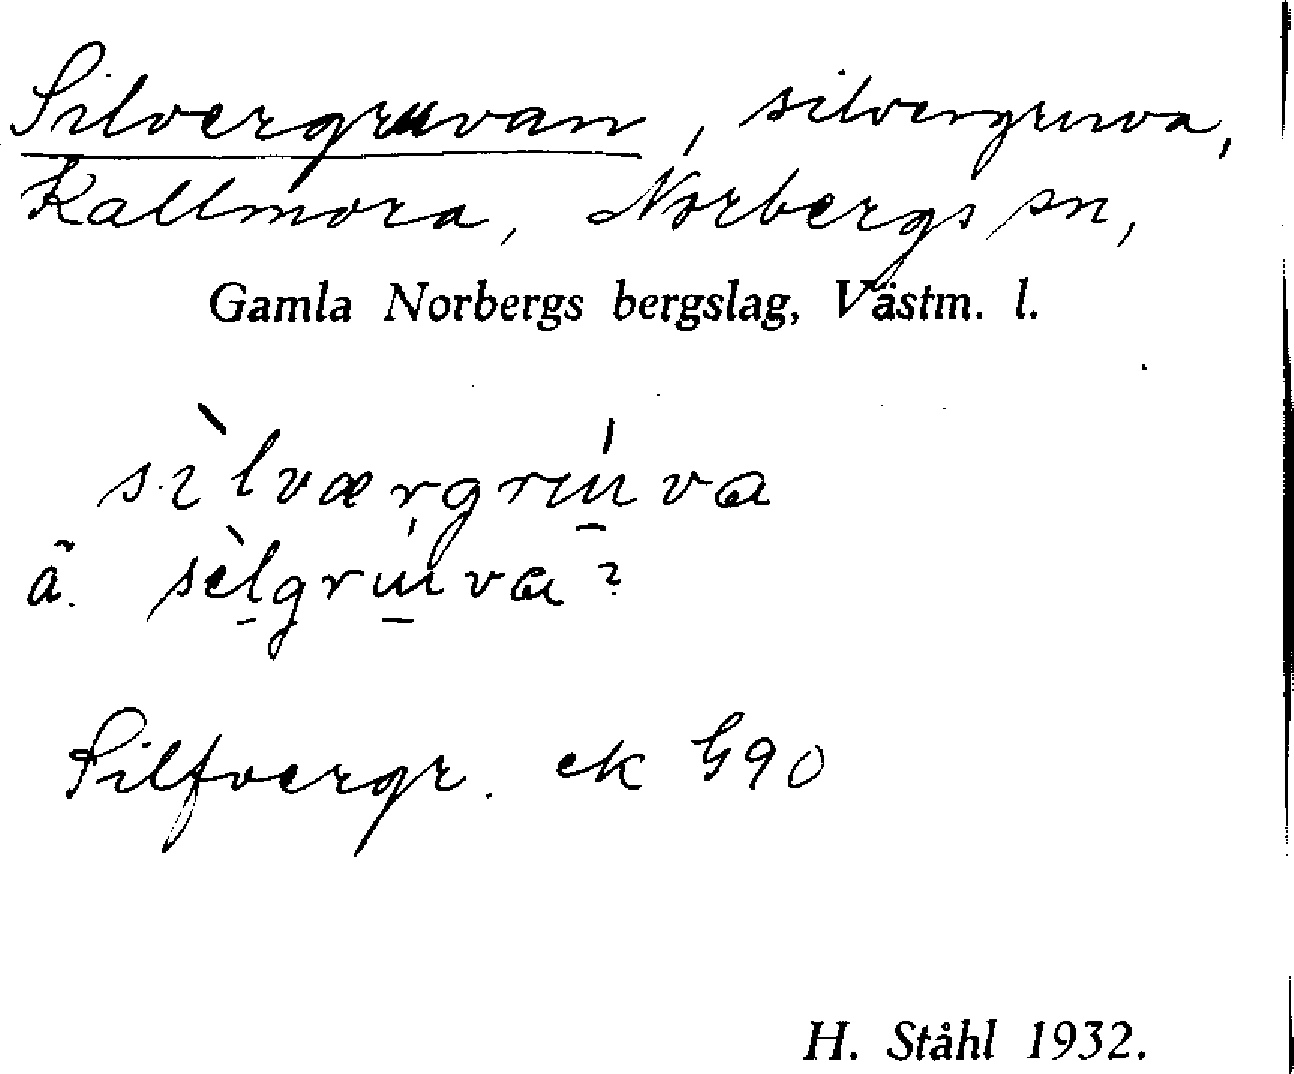 Silvergruvan, silvergruva,
Kallmora, Norbergs sn,
Gamla Norbergs bergslag, Västm. l.
sìlværgrúva
ä. sèlgrúva?
Silfvergr. ek G90
H. Ståhl 1932.